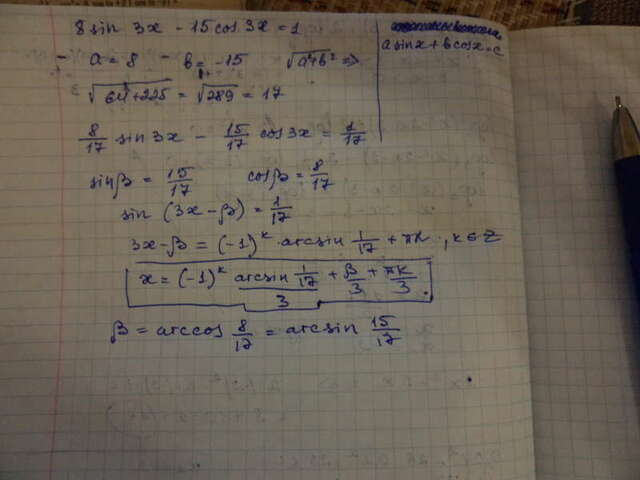 8 sin 3x - 15 cos 3x = 1
a sin x + b cos x = c
- a = 8 - b = -15 √a²+b² =>
√64+225 = √289 = 17
8/17 sin 3x - 15/17 cos 3x = 1/17
sin β = 15/17 cos β = 8/17
sin (3x - β) = 1/17
3x - β = (-1)^k · arcsin 1/17 + πk, k ∈ Z
x = (-1)^k arcsin 1/17 / 3 + β/3 + πk/3.
β = arccos 8/17 = arcsin 15/17